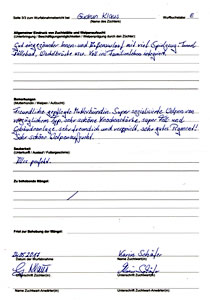 Seite 3/3 zum Wurfabnahmebericht bei Gudrun Klaus Wurfbuchstabe E
(Name des Züchters)
Allgemeiner Eindruck von Zuchtstätte und Welpenaufzucht:
(Unterbringung / Beschäftigungsmöglichkeiten / Welpenprägung durch den Züchter)
Gut eingezäunter Innen- und Außenauslauf mit viel Spielzeug, Tunnel,
Bällebad, Wackelbrücke usw. Voll im Familienleben integriert.
Bemerkungen:
(Mutterhündin / Welpen / Aufzucht)
Freundliche gepflegte Mutterhündin. Super sozialisierte Welpen von
vorzüglichem Typ, sehr schöne Knochenstärke, super Fell- und
Gebäudeanlage, sehr freundlich und verspielt, sehr gutes Pigment.
Sehr schöne Welpenaufzucht.
Sauberkeit
(Unterkunft / Auslauf / Futtergeschirre)
Alles perfekt.
Zu behebende Mängel:
Frist zur Behebung der Mängel:
Datum der Wurfabnahme
Karin Schäfer
Name Zuchtwart
Unterschrift Züchter
Unterschrift Zuchtwart
Name Zuchtwart-Anwärter(in)
Unterschrift Zuchtwart-Anwärter(in)